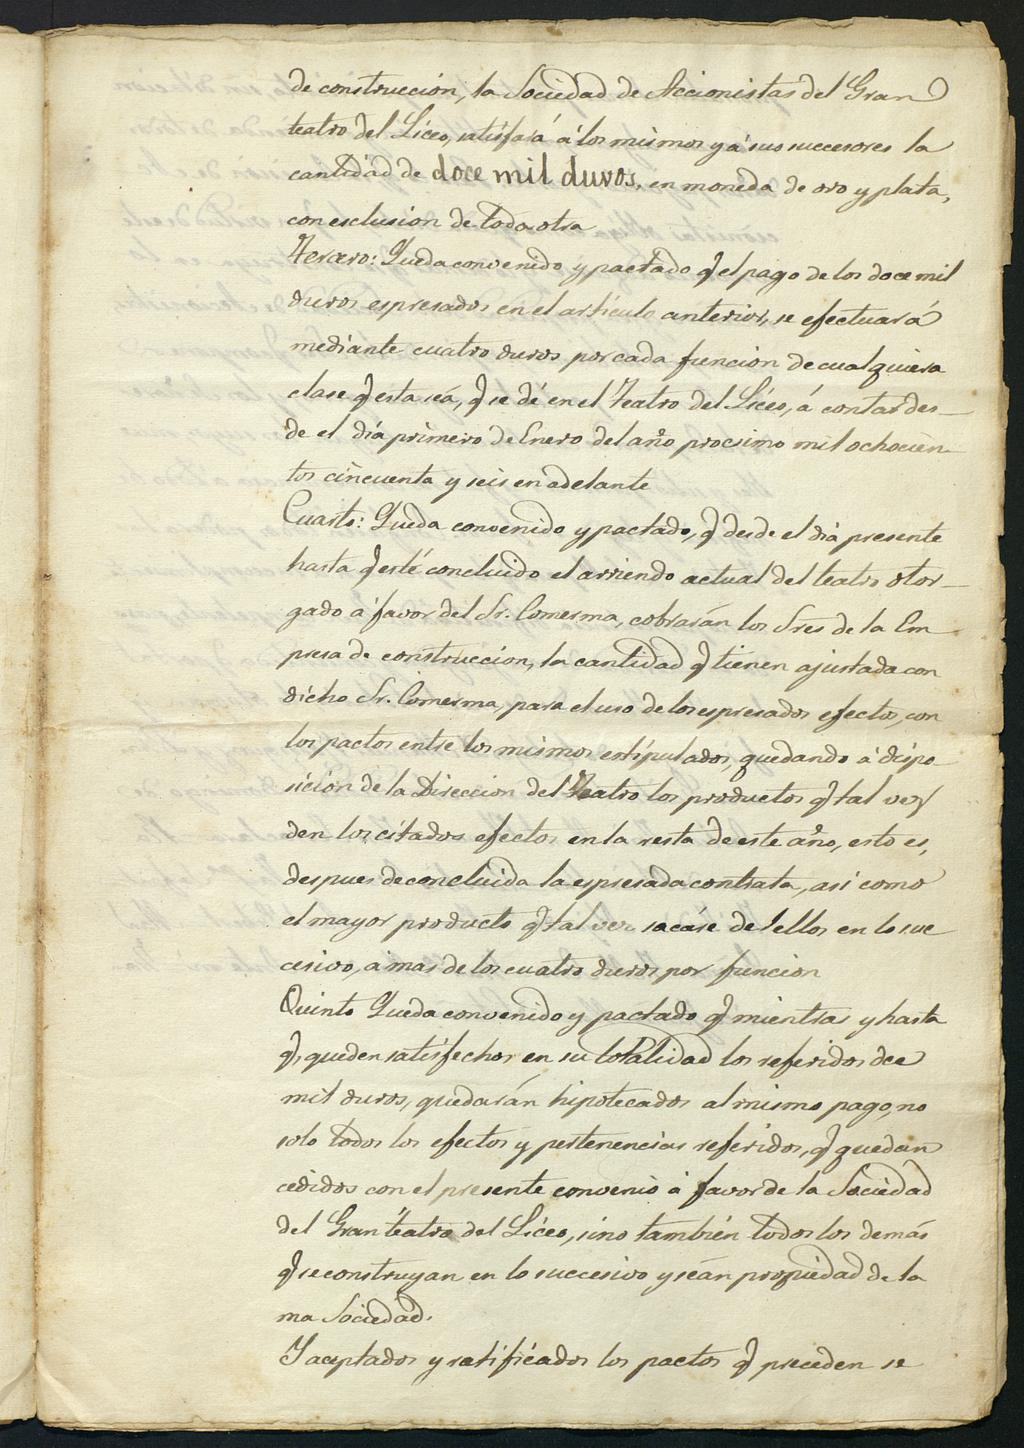 de construccion, la Sociedad de Accionistas del Gran
teatro del Liceo, satisfará á los mismos y á sus succesores la
cantidad de doce mil duros, en moneda de oro y plata,
con esclusion de toda otra
Tercero: Queda convenido y pactado q̃ el pago de los doce mil
duros espresados en el artículo anterior, se efectuará
mediante cuatro duros por cada funcion de cualquiera
clase q̃ esta sea, q̃ se dé en el Teatro del Liceo, á contar des-
de el dia primero de Enero del año procsimo mil ochocien-
tos cincuenta y seis en adelante
Cuarto: Queda convenido y pactado, q̃ desde el dia presente
hasta q̃ esté concluido el arriendo actual del teatro otor-
gado á favor del Sr. Comerma, cobrarán los Sres de la Em
presa de construccion, la cantidad q̃ tienen ajustada con
dicho Sr. Comerma, para el uso de los espresados efectos, con
los pactos entre los mismos estipulados, quedando á dispo
sicion de la Direccion del Teatro los productos q̃ tal vez
den los citados efectos en la resta de este año, esto es,
despues de concluida la espresada contrata, asi como
el mayor producto q̃ tal vez sacáse de ellos en lo suc
cesivo, á mas de los cuatro duros por funcion
Quinto Queda convenido y pactado q̃ mientras y hasta
q̃ queden satisfechos en su totalidad los referidos doce
mil duros, quedarán hipotecados al mismo pago, no
solo todos los efectos y pertenencias referidos, q̃ quedan
cedidos con el presente convenio á favor de la Sociedad
del Gran teatro del Liceo, sino tambien todos los demás
q̃ se construyan en lo succesivo y séan propiedad de la
ma Sociedad.
Y aceptados y ratificados los pactos q̃ preceden se